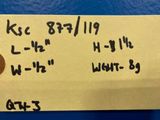 KSC 877/119
L - 1/2" H - 8 1/2
W - 1/2" WGHT - 8g
QTY-3